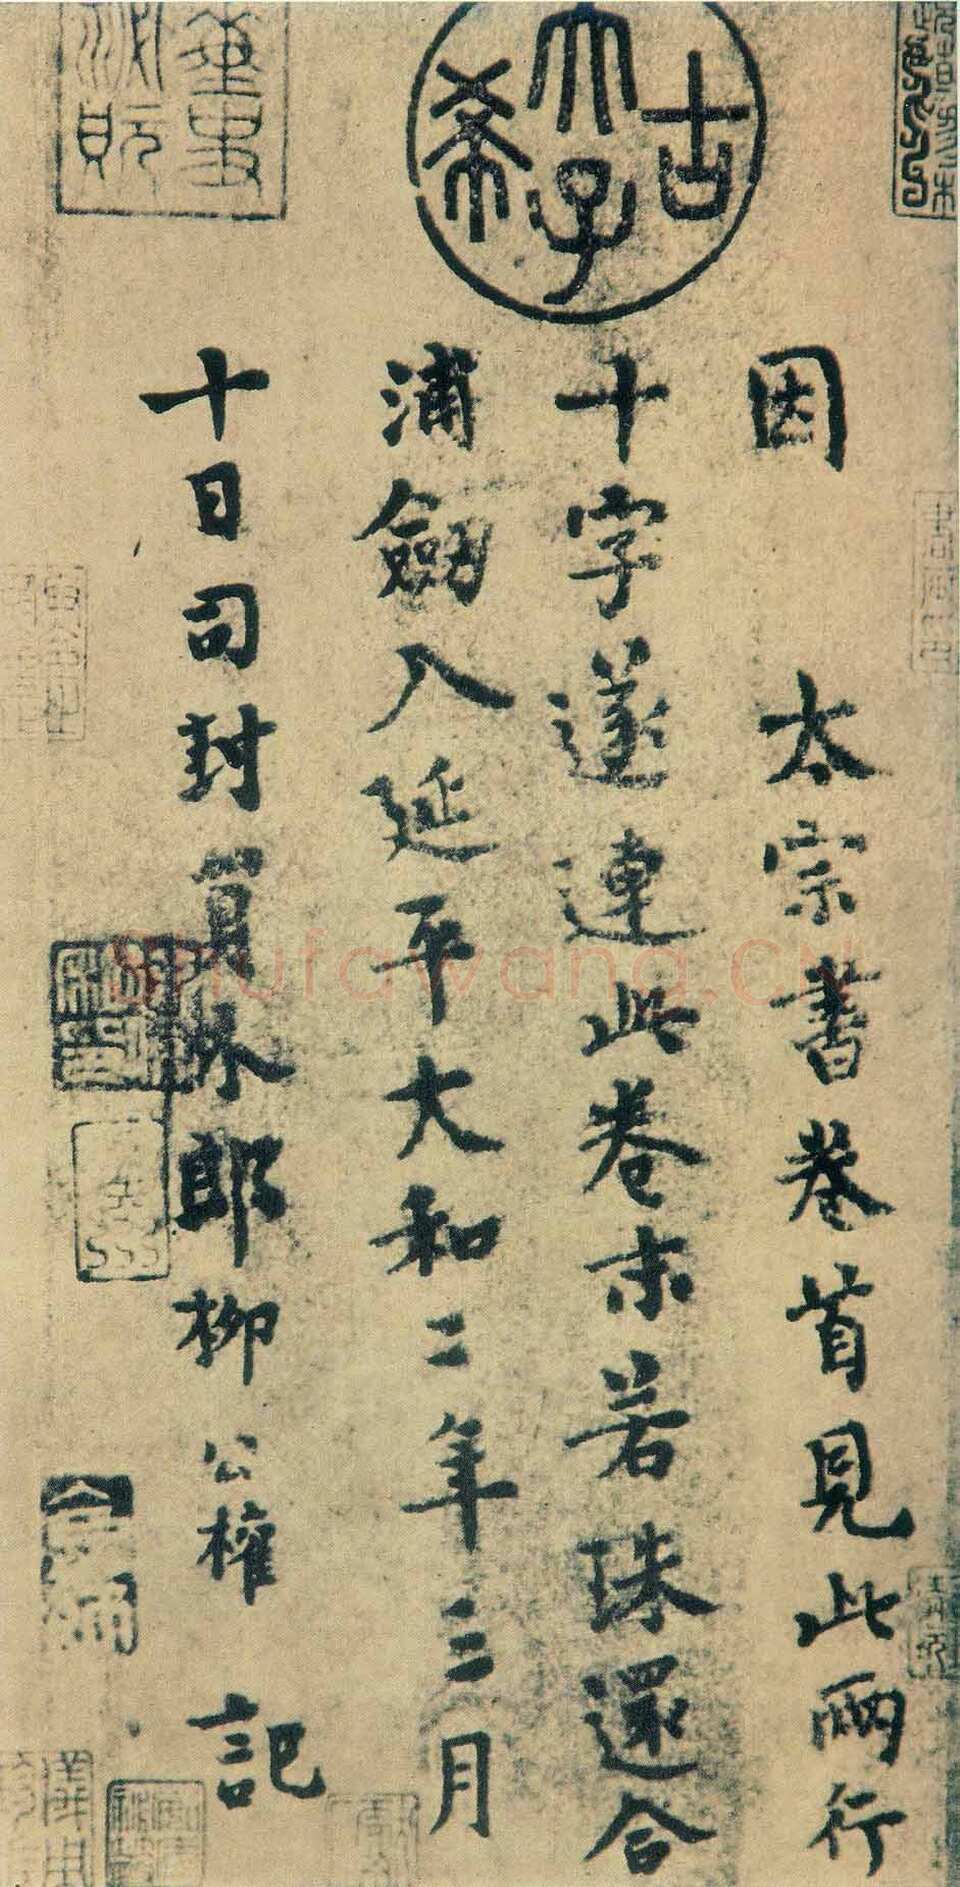 古希天子
因　太宗書卷首見此兩行
十字遂連此卷末若珠還合
浦劒入延平大和二年三月
十日司封員外郎柳公權　記
shufawang.CN